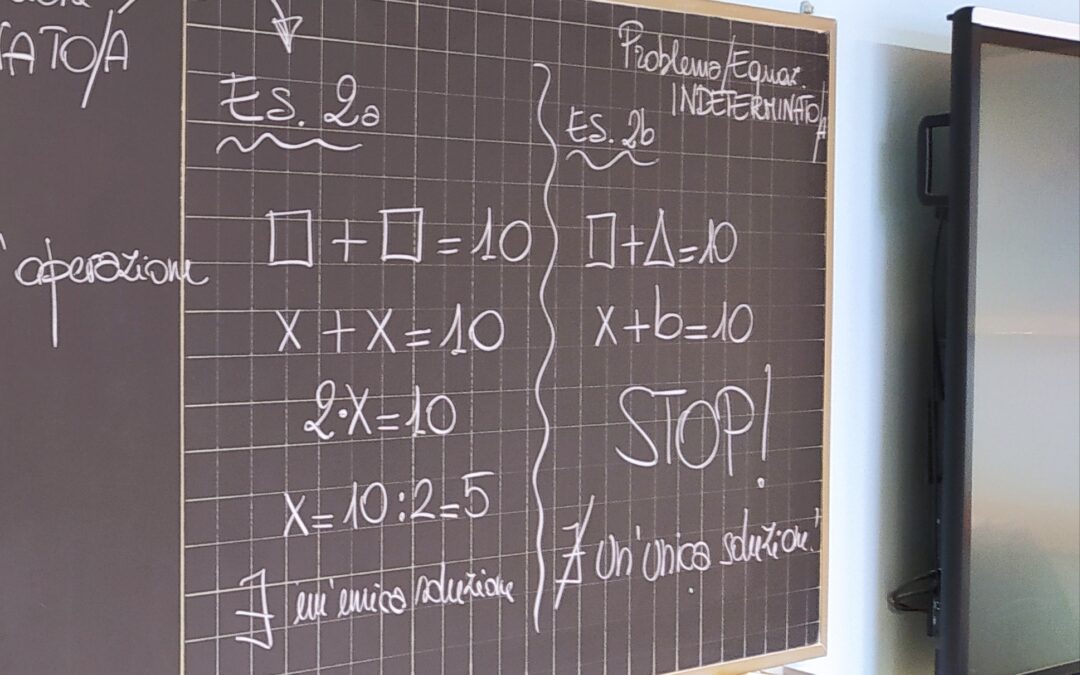 ATO/A
operazione
Es. 2a
□ + □ = 10
x + x = 10
2·x = 10
x = 10 : 2 = 5
∃ un'unica soluzione
Problema/Equaz.
INDETERMINATO/A
ES. 2b
□ + Δ = 10
x + b = 10
STOP!
∄ un'unica soluzione!